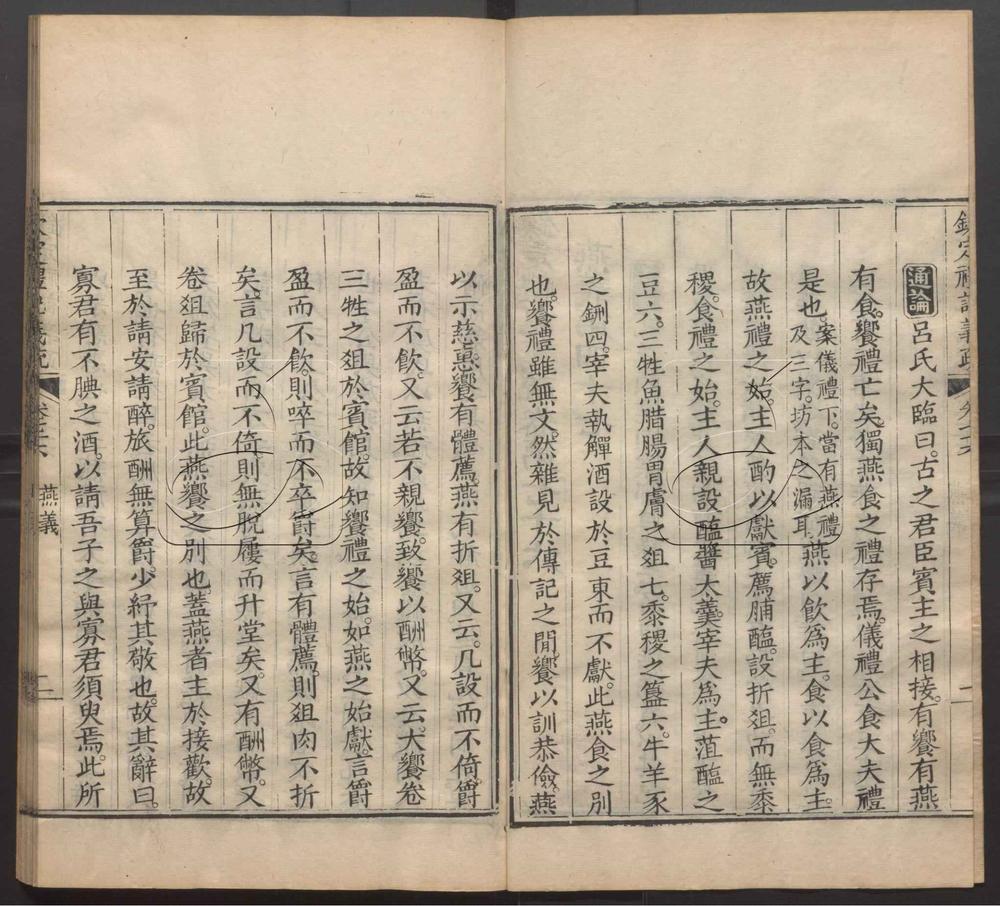 通論呂氏大臨曰。古之君臣賓主之相接。有饗有燕
有食。饗禮亡矣。獨燕食之禮存焉。儀禮公食大夫禮
是也。案儀禮下。當有燕禮及三字。坊本之漏耳。燕以飲爲主。食以食爲主。
故燕禮之始。主人酌以獻賓。薦脯醢。設折俎。而無黍
稷。食禮之始。主人親設醢醬。太羹。宰夫爲主。菹醢之
豆六。三牲魚腊腸胃膚之俎七。黍稷之簋六。牛羊豕
之鉶四。宰夫執觶酒設於豆東而不獻。此燕食之別
也。饗禮雖無文。然雜見於傳記之閒。饗以訓恭儉。燕
以示慈惠。饗有體薦。燕有折俎。又云。几設而不倚。爵
盈而不飲。又云若不親饗。致饗以酬幣。又云。大饗卷
三牲之俎於賓館。故知饗禮之始。如燕之始獻。言爵
盈而不飲。則啐而不卒爵矣。言有體薦。則俎肉不折
矣。言几設而不倚。則無脫屨而升堂矣。又有酬幣。又
卷俎歸於賓館。此燕饗之別也。蓋燕者主於接歡。故
至於請安請醉。旅酬無算爵。少紓其敬也。故其辭曰。
寡君有不腆之酒。以請吾子之與寡君須臾焉。此所
燕義
二